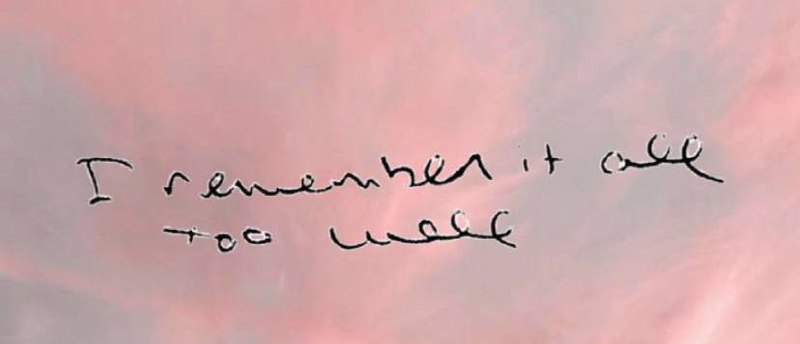 I remember it all
too well